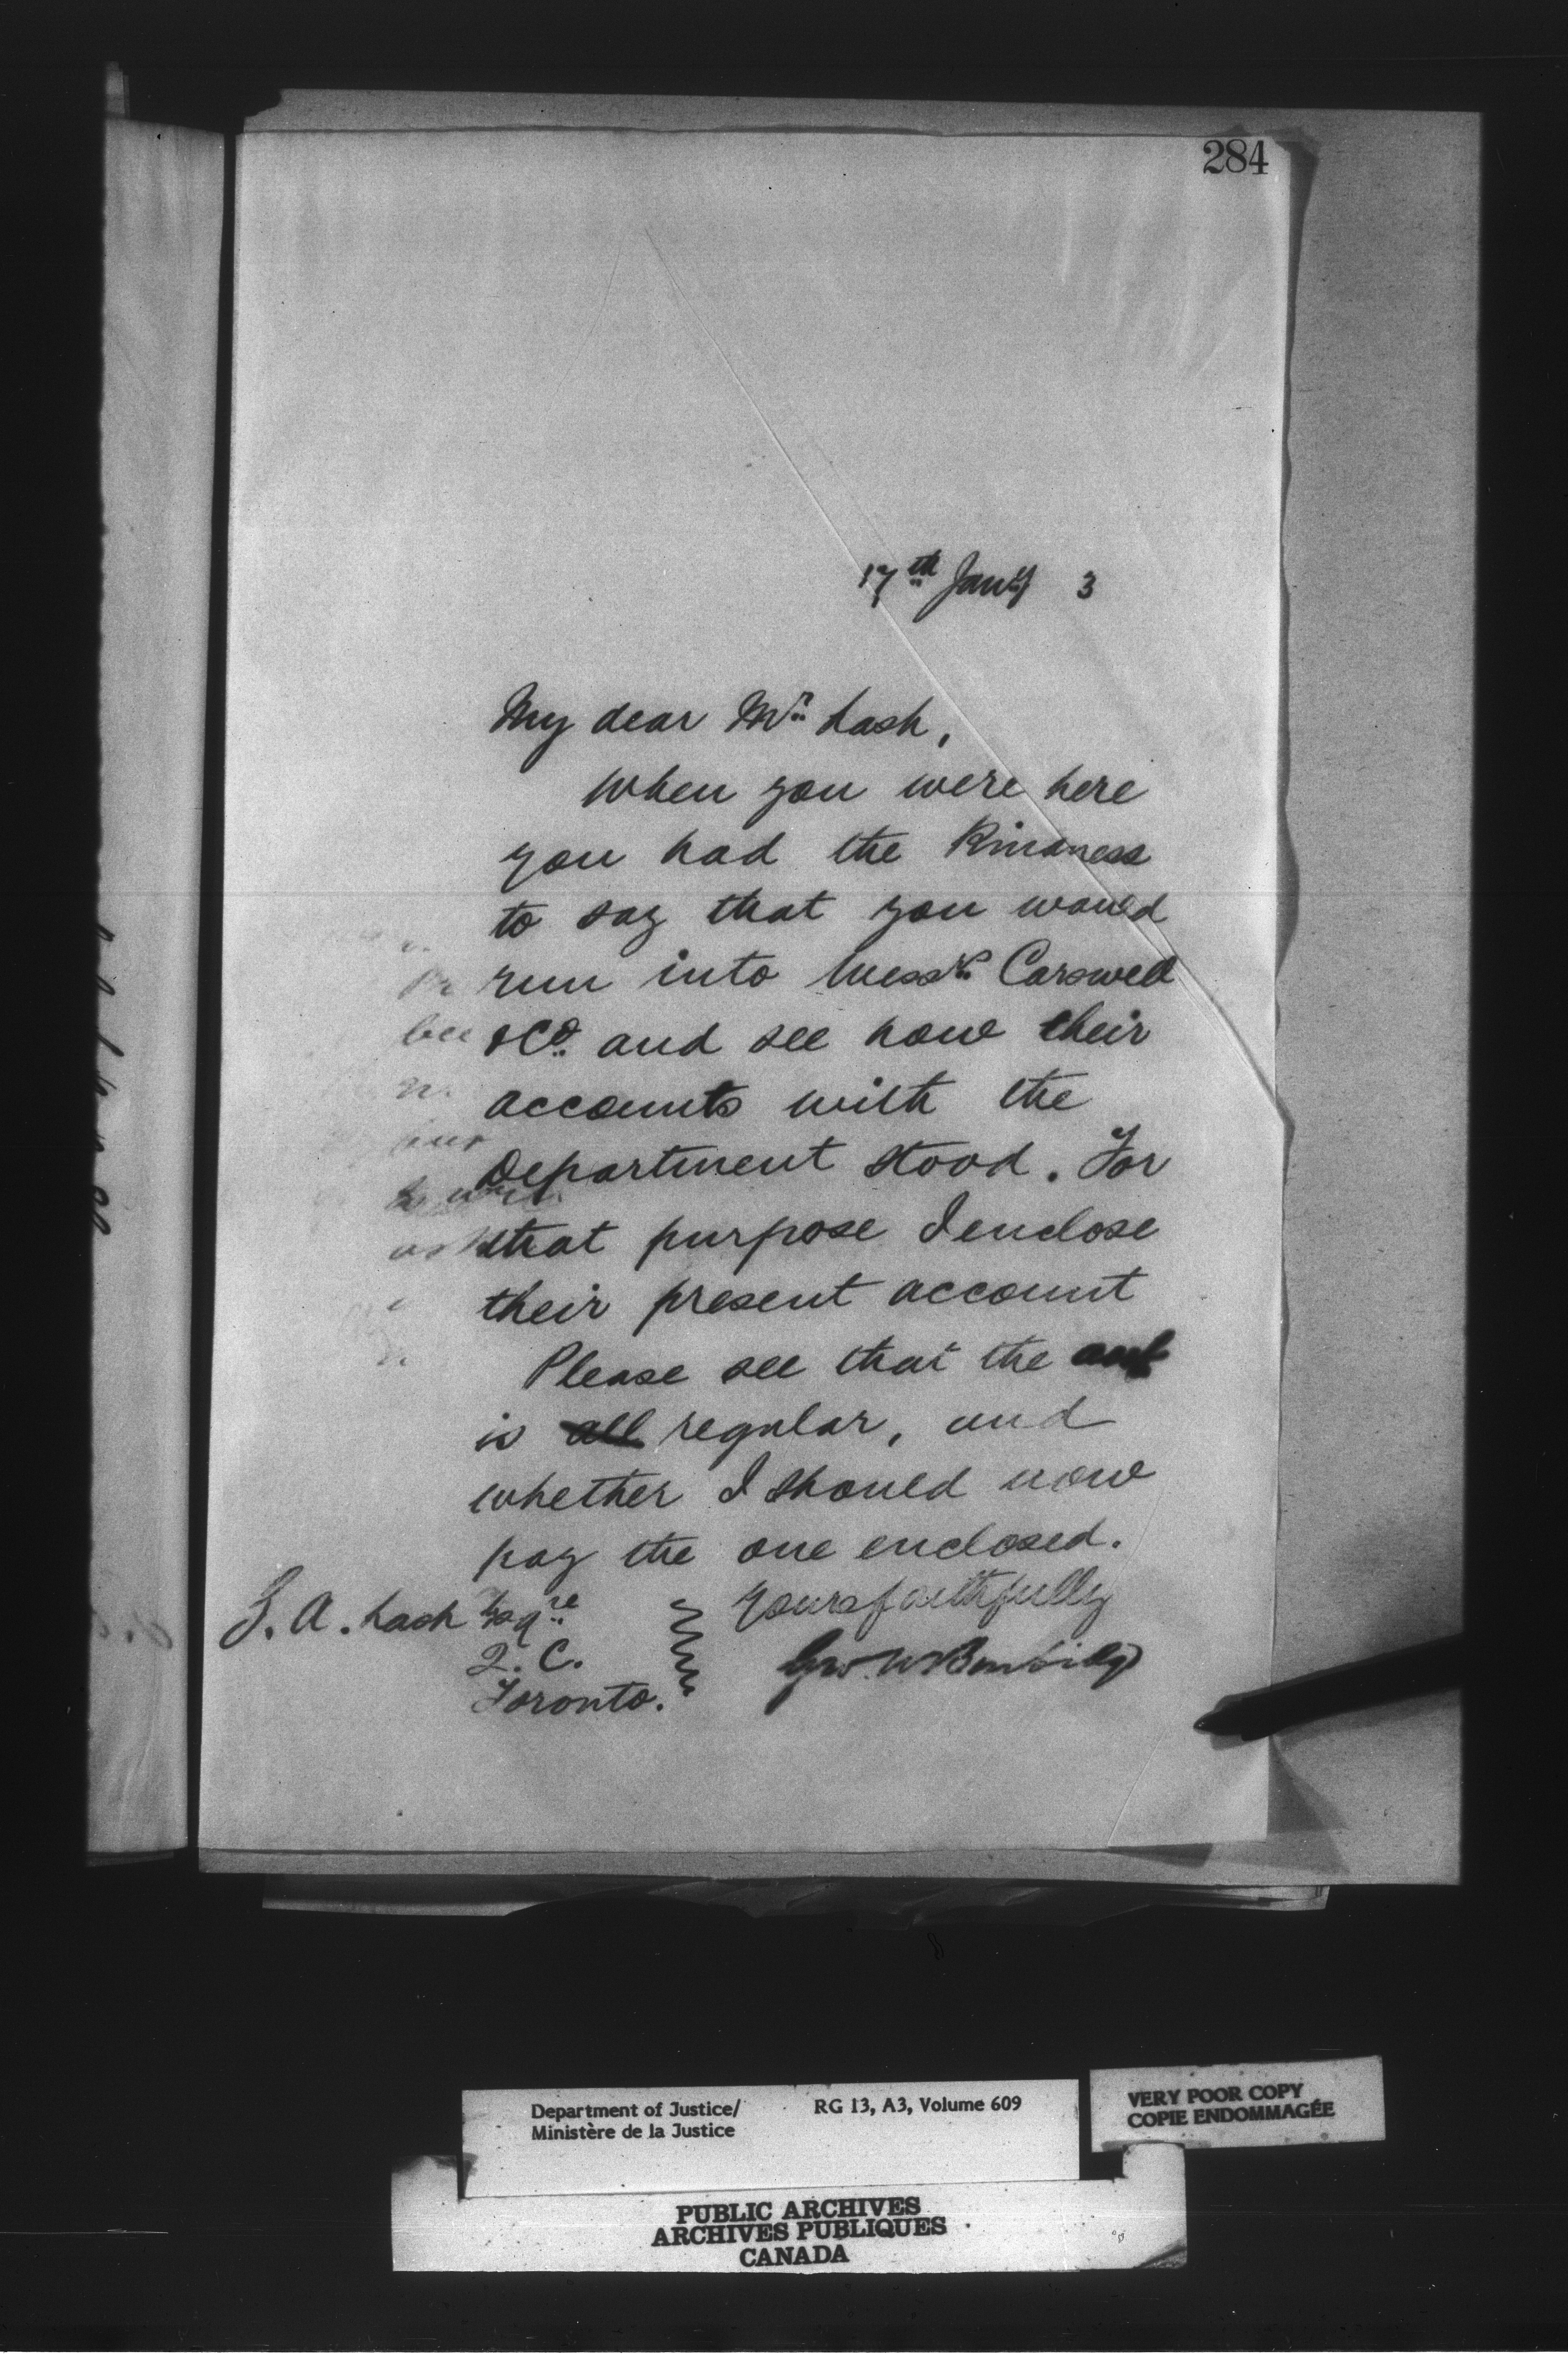 284
17th Jany 3
My dear Mr Lash,
When you were here
you had the kindness
to say that you would
run into Messrs Carswell
& Co. and see how their
accounts with the
Department stood. For
that purpose I enclose
their present account
Please see that the
is all regular, and
whether I should now
pay the one enclosed.
Yours faithfully
Z. A. Lash Esqre
Q. C.
Toronto.
Geo. W Burbidge
Department of Justice/ RG 13, A3, Volume 609
Ministère de la Justice
VERY POOR COPY
COPIE ENDOMMAGÉE
PUBLIC ARCHIVES
ARCHIVES PUBLIQUES
CANADA